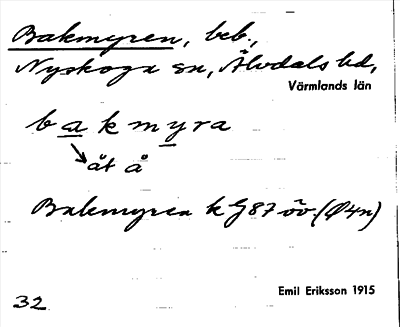 Bakmyren, beb.,
Nyskoga sn, Älvdals hd,
Värmlands län
bakmyra
åt å
Bakmyren k G87 öv. (Ø4n)
Emil Eriksson 1915
32